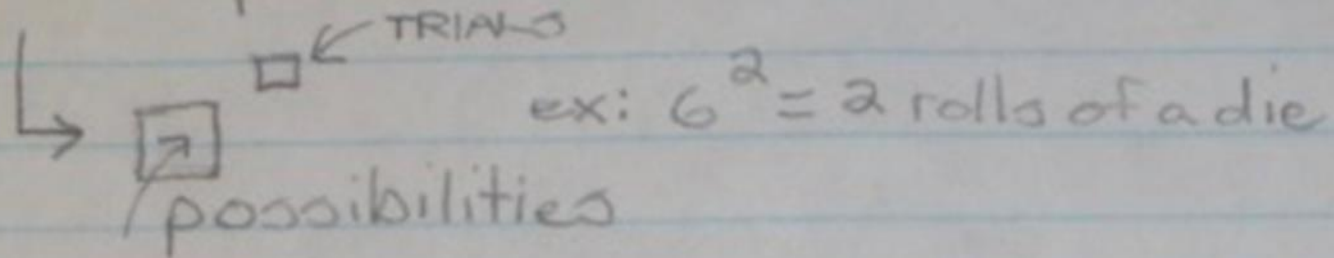 TRIALS
ex: 6² = 2 rolls of a die
possibilities